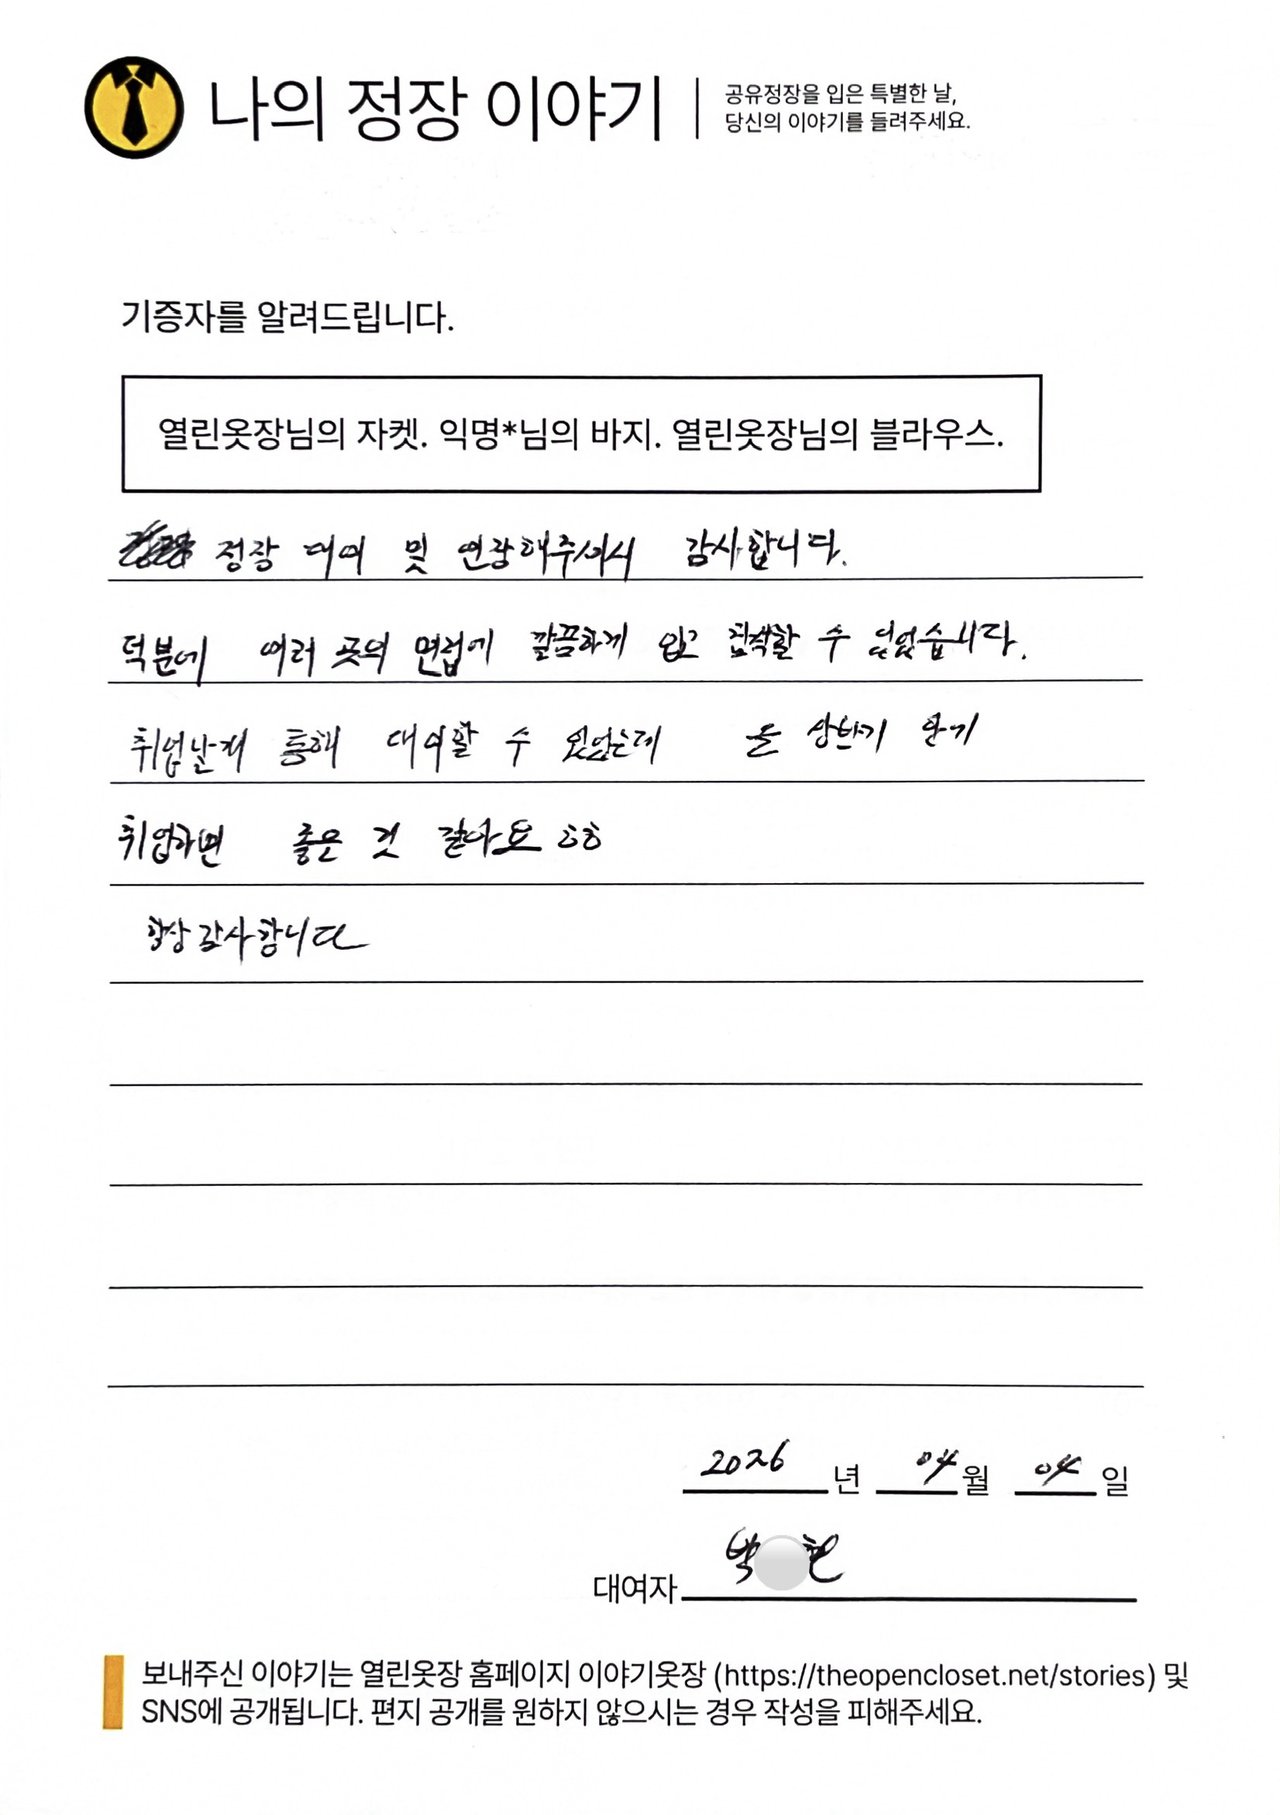 나의 정장 이야기
공유정장을 입은 특별한 날,
당신의 이야기를 들려주세요.
기증자를 알려드립니다.
열린옷장님의 자켓. 익명*님의 바지. 열린옷장님의 블라우스.
정장 대여 및 연장해주셔서 감사합니다.
덕분에 여러 곳의 면접에 깔끔하게 입고 참석할 수 있었습니다.
취업날개 통해 대여할 수 있었는데 올 상반기 안에
취업하면 좋은 것 같아요 ㅎㅎ
항상 감사합니다
2026 년 04 월 04 일
대여자 박 현
보내주신 이야기는 열린옷장 홈페이지 이야기옷장 (https://theopencloset.net/stories) 및
SNS에 공개됩니다. 편지 공개를 원하지 않으시는 경우 작성을 피해주세요.